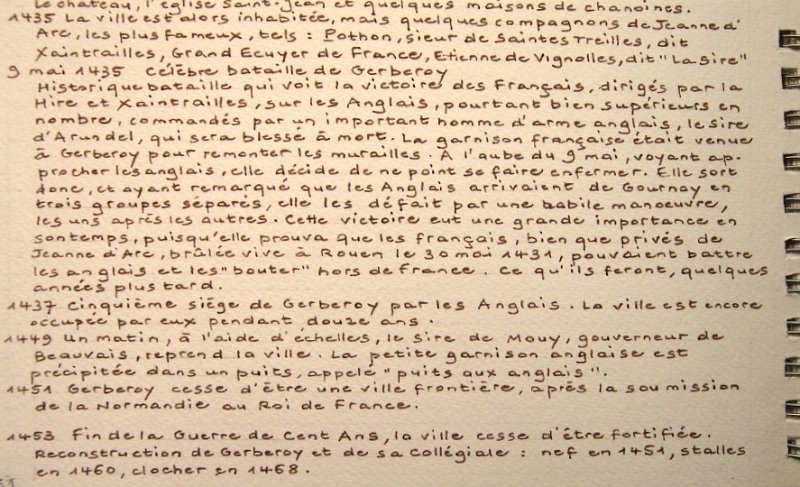 Le château, l'église Saint-Jean et quelques maisons de chanoines.
1435 La ville est alors inhabitée, mais quelques compagnons de Jeanne d'
Arc, les plus fameux, tels : Pothon, sieur de Saintes Treilles, dit
Xaintrailles, Grand Ecuyer de France, Etienne de Vignolles, dit "La Sire"
9 mai 1435 Célèbre bataille de Gerberoy
Historique bataille qui voit la victoire des Français, dirigés par la
Hire et Xaintrailles, sur les Anglais, pourtant bien supérieurs en
nombre, commandés par un important homme d'arme anglais, le Sire
d'Arundel, qui sera blessé à mort. La garnison française était venue
à Gerberoy pour remonter les murailles. A l'aube du 9 mai, voyant ap-
procher les anglais, elle décide de ne point se faire enfermer. Elle sort
donc, et ayant remarqué que les Anglais arrivaient de Gournay en
trois groupes séparés, elle les défait par une habile manoeuvre,
les uns après les autres. Cette victoire eut une grande importance en
son temps, puisqu'elle prouva que les français, bien que privés de
Jeanne d'Arc, brûlée vive à Rouen le 30 mai 1431, pouvaient battre
les anglais et les "bouter" hors de France. Ce qu'ils feront, quelques
années plus tard.
1437 Cinquième siège de Gerberoy par les Anglais. La ville est encore
occupée par eux pendant douze ans.
1449 Un matin, à l'aide d'échelles, le Sire de Mouy, gouverneur de
Beauvais, reprend la ville. La petite garnison anglaise est
précipitée dans un puits, appelé "puits aux anglais".
1451 Gerberoy cesse d'être une ville frontière, après la soumission
de la Normandie au Roi de France.
1453 Fin de la Guerre de Cent Ans, la ville cesse d'être fortifiée.
Reconstruction de Gerberoy et de sa Collégiale : nef en 1451, stalles
en 1460, clocher en 1468.